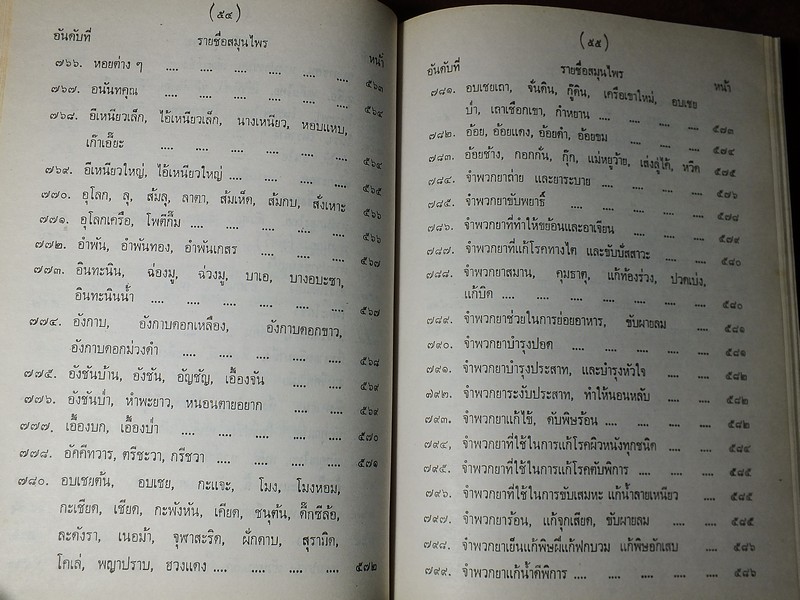 (๕๔)
อันดับที่ รายชื่อสมุนไพร หน้า
๗๖๖. หอยต่าง ๆ .... .... .... .... .... .... ๕๖๓
๗๖๗. อนันทคุณ .... .... .... .... .... .... ๕๖๔
๗๖๘. อีเหนียวเล็ก, ไอ้เหนียวเล็ก, นางเหนียว, หอบแหบ,
เก๊าเอี๊ยะ .... .... .... .... .... ๕๖๔
๗๖๙. อีเหนียวใหญ่, ไอ้เหนียวใหญ่ .... .... .... .... ๕๖๕
๗๗๐. อุโลก, ลุ, ส้มลุ, ลาตา, ส้มเห็ด, ส้มกบ, สั่งเหาะ ๕๖๖
๗๗๑. อุโลกเครือ, โพตีกี้ม .... .... .... .... .... ๕๖๖
๗๗๒. อำพัน, อำพันทอง, อำพันเกสร .... .... .... ๕๖๗
๗๗๓. อินทะนิน, ฉ่องมู, ฉ่วงมู, บาเอ, บางอบะซา,
อินทะนินน้ำ .... .... .... .... .... ๕๖๗
๗๗๔. อังกาบ, อังกาบดอกเหลือง, อังกาบดอกขาว,
อังกาบดอกม่วงดำ .... .... .... .... ๕๖๘
๗๗๕. อังชันบ้าน, อังชัน, อัญชัญ, เอื้องจัน .... .... ๕๖๙
๗๗๖. อังชันป่า, หำพะยาว, หนอนตายอยาก .... .... ๕๖๙
๗๗๗. เอื้องบก, เอื้องป่า .... .... .... .... .... ๕๗๐
๗๗๘. อัคคีทวาร, ตรีชะวา, กรีชวา .... .... .... .... ๕๗๑
๗๘๐. อบเชยต้น, อบเชย, กะแจะ, โมง, โมงหอม,
กะเชียด, เชียด, กะพังหัน, เคียด, ชนุต้น, ดิ๊กซีล้อ,
ละดังรา, เนอม้า, จุฬาสะริด, ฝักดาบ, สุรามิด,
โคเล่, พญาปราบ, ฮวงแดง .... .... .... .... ๕๗๒
(๕๕)
อันดับที่ รายชื่อสมุนไพร หน้า
๗๘๑. อบเชยเถา, จั่นดิน, กู๊ดิน, เครือเขาใหม่, อบเชย
ป่า, เถาเชือกเขา, กำหยาน .... .... .... ๕๗๓
๗๘๒. อ้อย, อ้อยแดง, อ้อยดำ, อ้อยขม .... .... ๕๗๔
๗๘๓. อ้อยช้าง, กอกกั่น, กุ๊ก, แม่หยูว้าย, เส่งลู่ไค้, หวีด ๕๗๕
๗๘๔. จำพวกยาถ่าย และยาระบาย .... .... .... ๕๗๖
๗๘๕. จำพวกยาขับพยาธิ์ .... .... .... .... ๕๗๘
๗๘๖. จำพวกยาที่ทำให้ขย้อนและอาเจียน .... .... ๕๗๙
๗๘๗. จำพวกยาที่แก้โรคทางไต และขับปัสสาวะ .... .... ๕๘๐
๗๘๘. จำพวกยาสมาน, คุมธาตุ, แก้ท้องร่วง, ปวดเบ่ง,
แก้บิด .... .... .... .... .... .... ๕๘๐
๗๘๙. จำพวกยาช่วยในการย่อยอาหาร, ขับผายลม .... ๕๘๑
๗๙๐. จำพวกยาบำรุงปอด .... .... .... .... ๕๘๑
๗๙๑. จำพวกยาบำรุงประสาท, และบำรุงหัวใจ .... .... ๕๘๒
๗๙๒. จำพวกยาระงับประสาท, ทำให้นอนหลับ .... .... ๕๘๒
๗๙๓. จำพวกยาแก้ไข้, ดับพิษร้อน .... .... .... ๕๘๒
๗๙๔, จำพวกยาที่ใช้ในการแก้โรคผิวหนังทุกชนิด .... .... ๕๘๔
๗๙๕. จำพวกยาที่ใช้ในการแก้โรคตับพิการ .... .... .... ๕๘๕
๗๙๖. จำพวกยาที่ใช้ในการขับเสมหะ แก้น้ำลายเหนียว .... ๕๘๕
๗๙๗. จำพวกยาร้อน, แก้จุกเสียด, ขับผายลม .... .... ๕๘๕
๗๙๘. จำพวกยาเย็นแก้พิษฝีแก้ฟกบวม แก้พิษอักเสบ .... ๕๘๖
๗๙๙. จำพวกยาแก้น้ำดีพิการ .... .... .... .... ๕๘๖